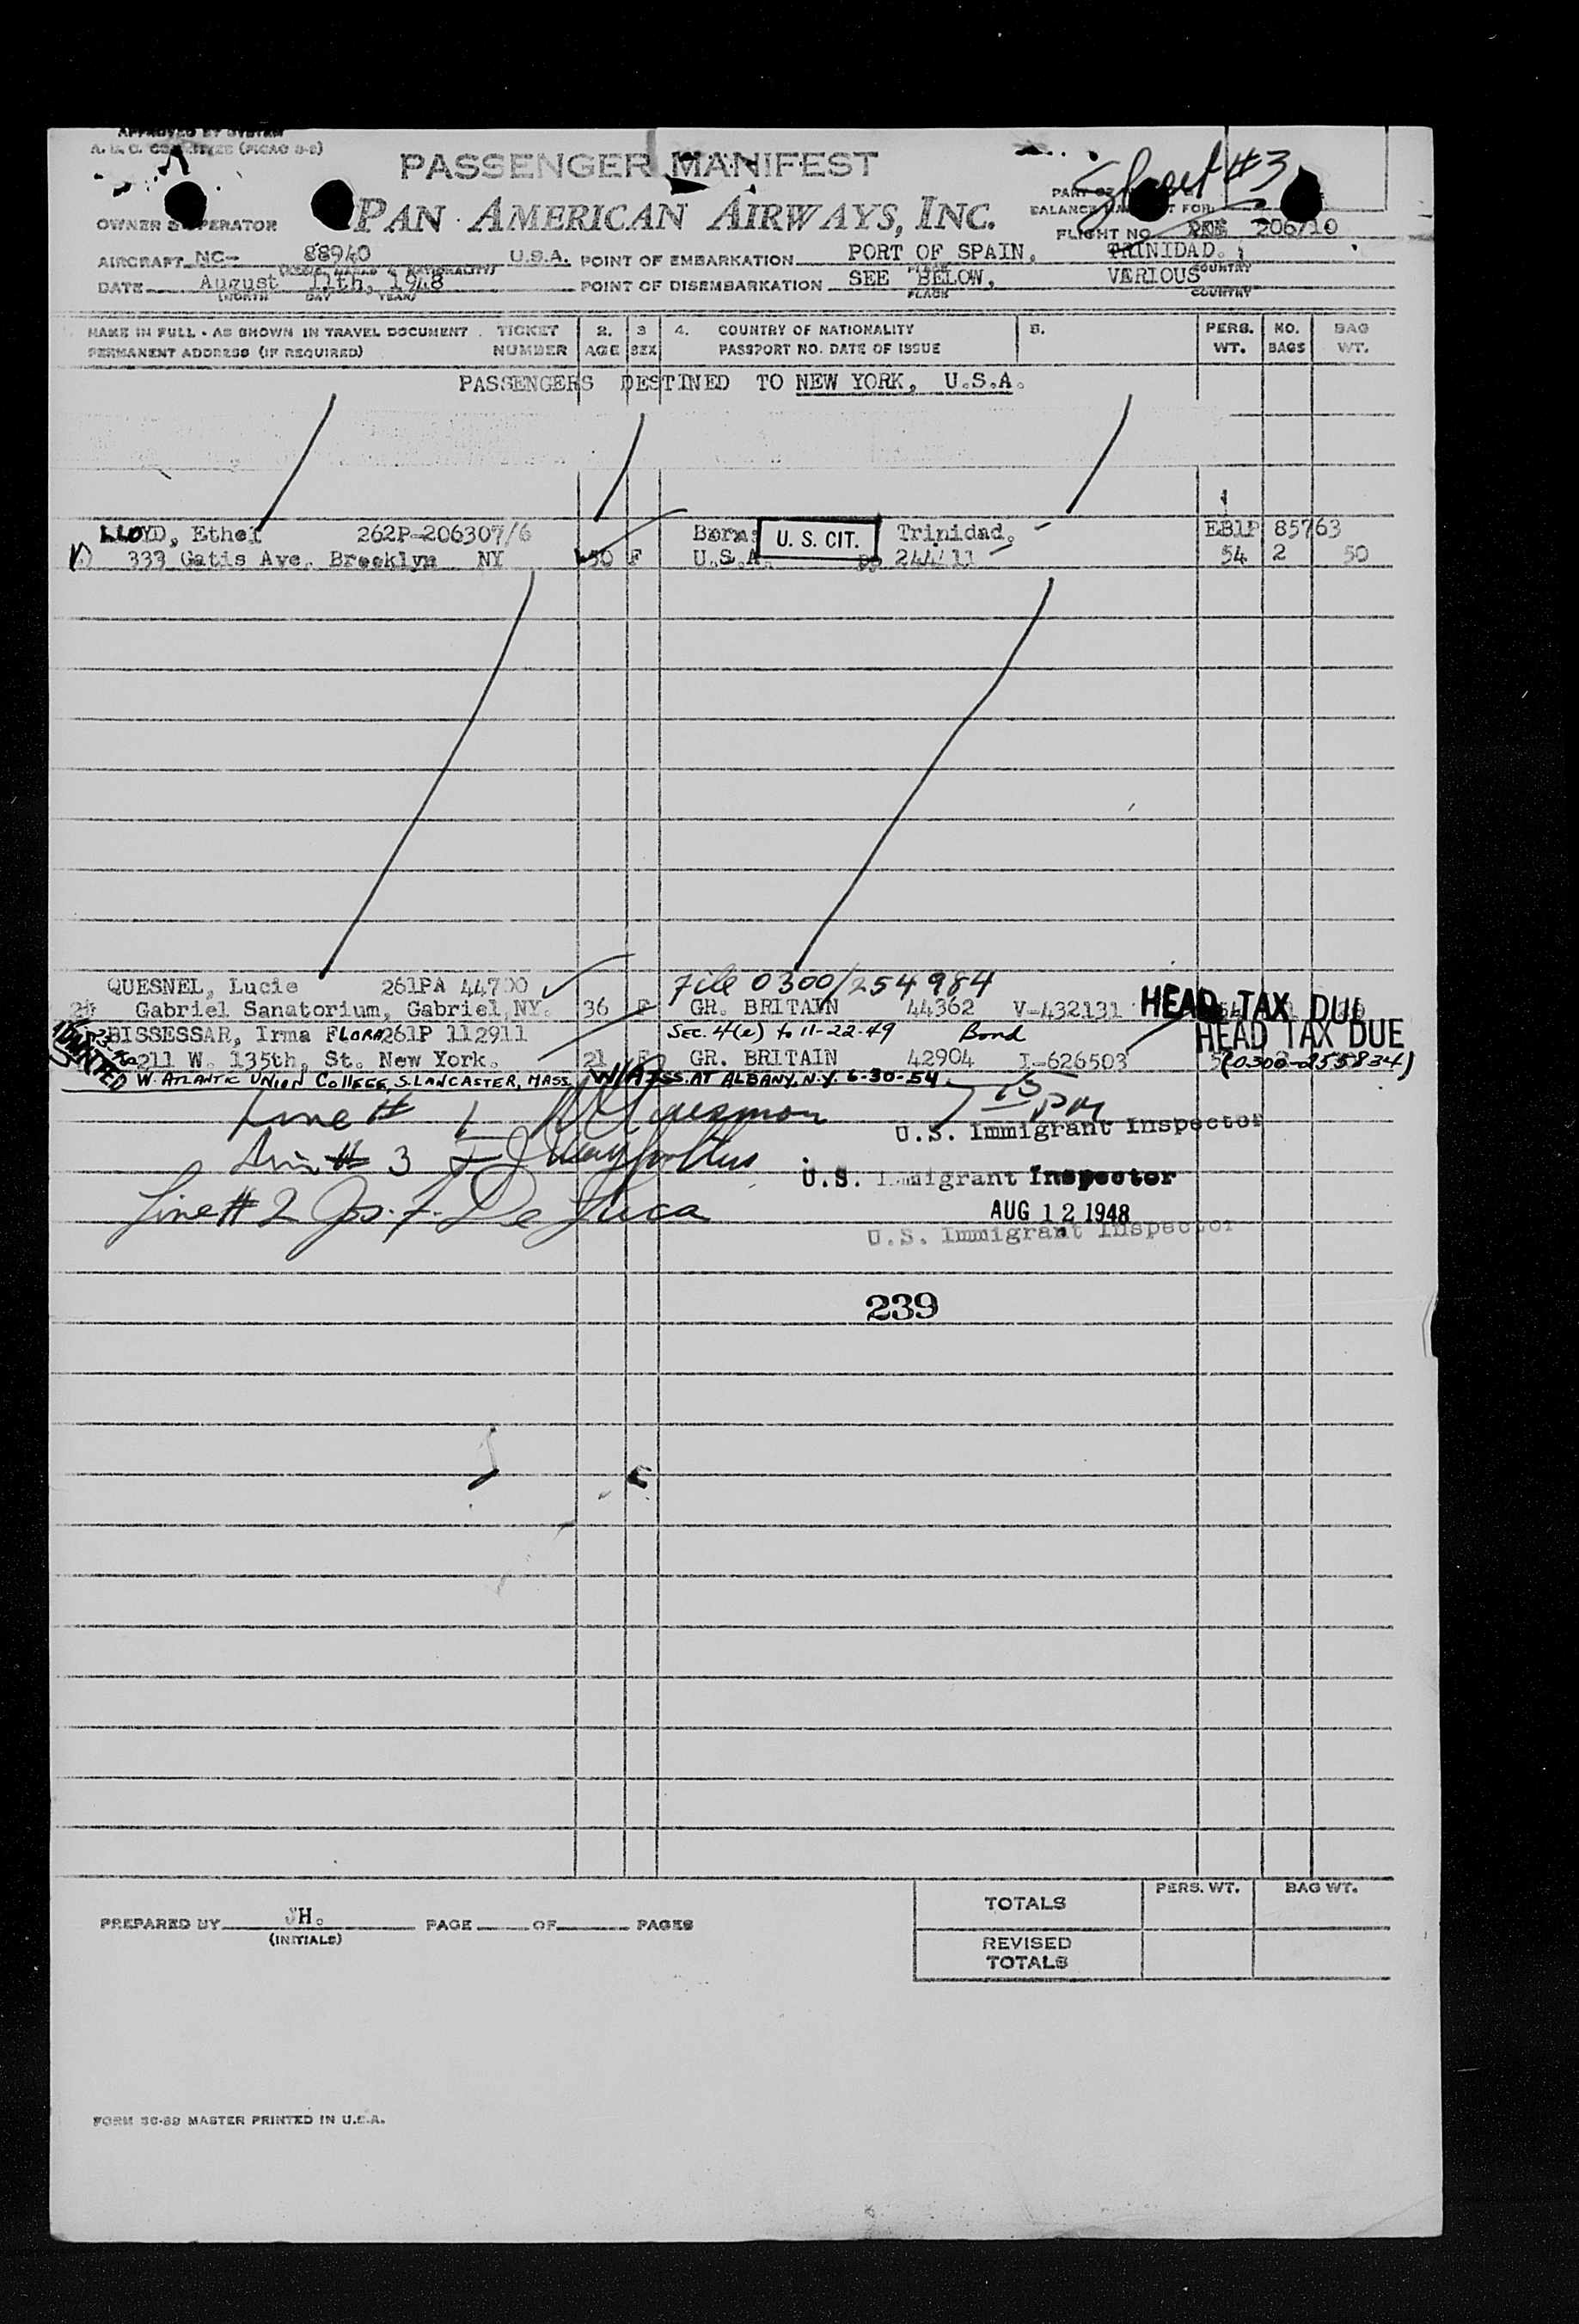 APPROVED BY SYSTEM
A. M. C. COMMITTEE (PICAO 3-2)
PASSENGER MANIFEST
Sheet #3
OWNER & OPERATOR PAN AMERICAN AIRWAYS, INC.
BALANCE MANIFEST FOR
FLIGHT NO. 206/10
AIRCRAFT NC- 88940 U.S.A. POINT OF EMBARKATION PORT OF SPAIN, TRINIDAD.
(REGIS. MARKS & NATIONALITY) PLACE COUNTRY
DATE August 11th, 1948 POINT OF DISEMBARKATION SEE BELOW, VERIOUS
(MONTH DAY YEAR) PLACE COUNTRY
NAME IN FULL - AS SHOWN IN TRAVEL DOCUMENT TICKET 2. 3 4. COUNTRY OF NATIONALITY 5. PERS. NO. BAG
PERMANENT ADDRESS (IF REQUIRED) NUMBER AGE SEX PASSPORT NO. DATE OF ISSUE WT. BAGS WT.
PASSENGERS DESTINED TO NEW YORK, U.S.A.
LLOYD, Ethel 262P-206307/6 Born: U. S. CIT. Trinidad, EB1P 85763
333 Gatis Ave. Brooklyn NY 50 F U.S.A. PP 244411 54 2 50
QUESNEL, Lucie 261PA 44700 File 0300/254984
Gabriel Sanatorium, Gabriel NY. 36 F GR. BRITAIN 44362 V-432131 HEAD TAX DUE
BISSESSAR, Irma FLORA 261P 112911 Sec. 4(e) to 11-22-49 Bond HEAD TAX DUE
211 W. 135th, St. New York. 21 F GR. BRITAIN 42904 I-626503 (0300-255834)
ADMITTED
W. ATLANTIC UNION COLLEGE, S. LANCASTER, MASS. W/A ISS. AT ALBANY, N.Y. 6-30-54
Line # 1
U.S. Immigrant Inspector
Line # 3
U.S. Immigrant Inspector
Line # 2 Jos. F. De Luca
AUG 12 1948
U.S. Immigrant Inspector
239
PREPARED BY JH. PAGE OF PAGES
(INITIALS)
TOTALS PERS. WT. BAG WT.
REVISED
TOTALS
FORM SC-89 MASTER PRINTED IN U.S.A.